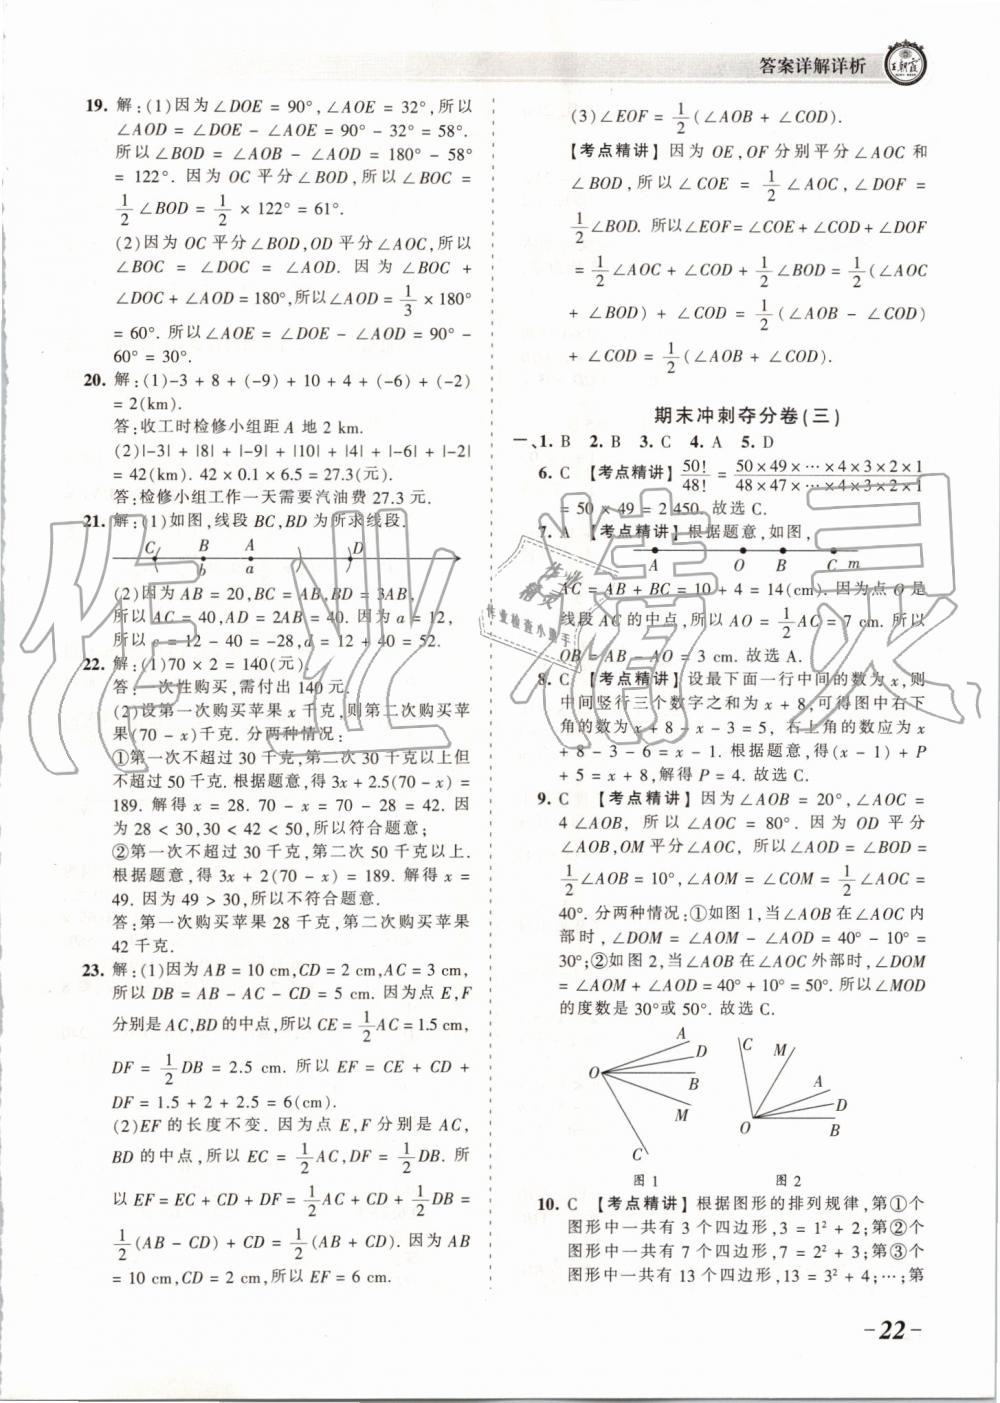 答案详解详析
王朝霞
19. 解:(1)因为∠DOE = 90°,∠AOE = 32°,所以
∠AOD = ∠DOE − ∠AOE = 90° − 32° = 58°.
所以∠BOD = ∠AOB − ∠AOD = 180° − 58°
= 122°. 因为 OC 平分∠BOD,所以∠BOC =
1/2 ∠BOD = 1/2 × 122° = 61°.
(2)因为 OC 平分∠BOD,OD 平分∠AOC,所以
∠BOC = ∠DOC = ∠AOD. 因为∠BOC +
∠DOC + ∠AOD = 180°,所以∠AOD = 1/3 × 180°
= 60°. 所以∠AOE = ∠DOE − ∠AOD = 90° −
60° = 30°.
20. 解:(1)-3 + 8 + (-9) + 10 + 4 + (-6) + (-2)
= 2(km).
答:收工时检修小组距 A 地 2 km.
(2)|-3| + |8| + |-9| + |10| + |4| + |-6| + |-2|
= 42(km). 42 × 0.1 × 6.5 = 27.3(元).
答:检修小组工作一天需要汽油费 27.3 元.
21. 解:(1)如图,线段 BC,BD 为所求线段.
C B A D
b a
(2)因为 AB = 20,BC = AB,BD = 3AB,
所以 AC = 40,AD = 2AB = 40. 因为 a = 12,
所以 c = 12 − 40 = −28,d = 12 + 40 = 52.
22. 解:(1)70 × 2 = 140(元).
答:一次性购买,需付出 140 元.
(2)设第一次购买苹果 x 千克,则第二次购买苹
果(70 − x)千克. 分两种情况:
①第一次不超过 30 千克,第二次超过 30 千克但
不超过 50 千克. 根据题意,得 3x + 2.5(70 − x) =
189. 解得 x = 28. 70 − x = 70 − 28 = 42. 因
为 28 < 30,30 < 42 < 50,所以符合题意;
②第一次不超过 30 千克,第二次 50 千克以上.
根据题意,得 3x + 2(70 − x) = 189. 解得 x =
49. 因为 49 > 30,所以不符合题意.
答:第一次购买苹果 28 千克,第二次购买苹果
42 千克.
23. 解:(1)因为 AB = 10 cm,CD = 2 cm,AC = 3 cm,
所以 DB = AB − AC − CD = 5 cm. 因为点 E,F
分别是 AC,BD 的中点,所以 CE = 1/2 AC = 1.5 cm,
DF = 1/2 DB = 2.5 cm. 所以 EF = CE + CD +
DF = 1.5 + 2 + 2.5 = 6(cm).
(2)EF 的长度不变. 因为点 E,F 分别是 AC,
BD 的中点,所以 EC = 1/2 AC,DF = 1/2 DB. 所
以 EF = EC + CD + DF = 1/2 AC + CD + 1/2 DB =
1/2 (AB − CD) + CD = 1/2 (AB + CD). 因为 AB
= 10 cm,CD = 2 cm,所以 EF = 6 cm.
(3)∠EOF = 1/2 (∠AOB + ∠COD).
【考点精讲】因为 OE,OF 分别平分∠AOC 和
∠BOD,所以∠COE = 1/2 ∠AOC,∠DOF =
1/2 ∠BOD. 所以∠EOF = ∠COE + ∠COD + ∠DOF
= 1/2 ∠AOC + ∠COD + 1/2 ∠BOD = 1/2 (∠AOC
+ ∠BOD) + ∠COD = 1/2 (∠AOB − ∠COD)
+ ∠COD = 1/2 (∠AOB + ∠COD).
期末冲刺夺分卷(三)
一、1. B 2. B 3. C 4. A 5. D
6. C 【考点精讲】50!/48! = 50×49×…×4×3×2×1/48×47×…×4×3×2×1
= 50 × 49 = 2 450. 故选 C.
7. A 【考点精讲】根据题意,如图,
A O B C m
AC = AB + BC = 10 + 4 = 14(cm). 因为点 O 是
线段 AC 的中点,所以 AO = 1/2 AC = 7 cm. 所以
OB = AB − AO = 3 cm. 故选 A.
8. C 【考点精讲】设最下面一行中间的数为 x,则
中间竖行三个数字之和为 x + 8,可得图中右下
角的数为 x + 8 − x − 3 = 5, 右上角的数应为 x
+ 8 − 3 − 6 = x − 1. 根据题意,得(x − 1) + P
+ 5 = x + 8,解得 P = 4. 故选 C.
9. C 【考点精讲】因为∠AOB = 20°,∠AOC =
4∠AOB, 所以∠AOC = 80°. 因为 OD 平分
∠AOB,OM 平分∠AOC, 所以∠AOD = ∠BOD =
1/2 ∠AOB = 10°,∠AOM = ∠COM = 1/2 ∠AOC =
40°. 分两种情况:①如图 1,当∠AOB 在∠AOC 内
部时,∠DOM = ∠AOM − ∠AOD = 40° − 10° =
30°;②如图 2,当∠AOB 在∠AOC 外部时,∠DOM
= ∠AOM + ∠AOD = 40° + 10° = 50°. 所以∠MOD
的度数是 30°或 50°. 故选 C.
A D B M C O
图 1
C M A D B O
图 2
10. C 【考点精讲】根据图形的排列规律,第①个
图形中一共有 3 个四边形,3 = 1² + 2;第②个
图形中一共有 7 个四边形,7 = 2² + 3;第③个
图形中一共有 13 个四边形,13 = 3² + 4;…;第
-22-
作业精灵
作业
精灵
作业检查小助手